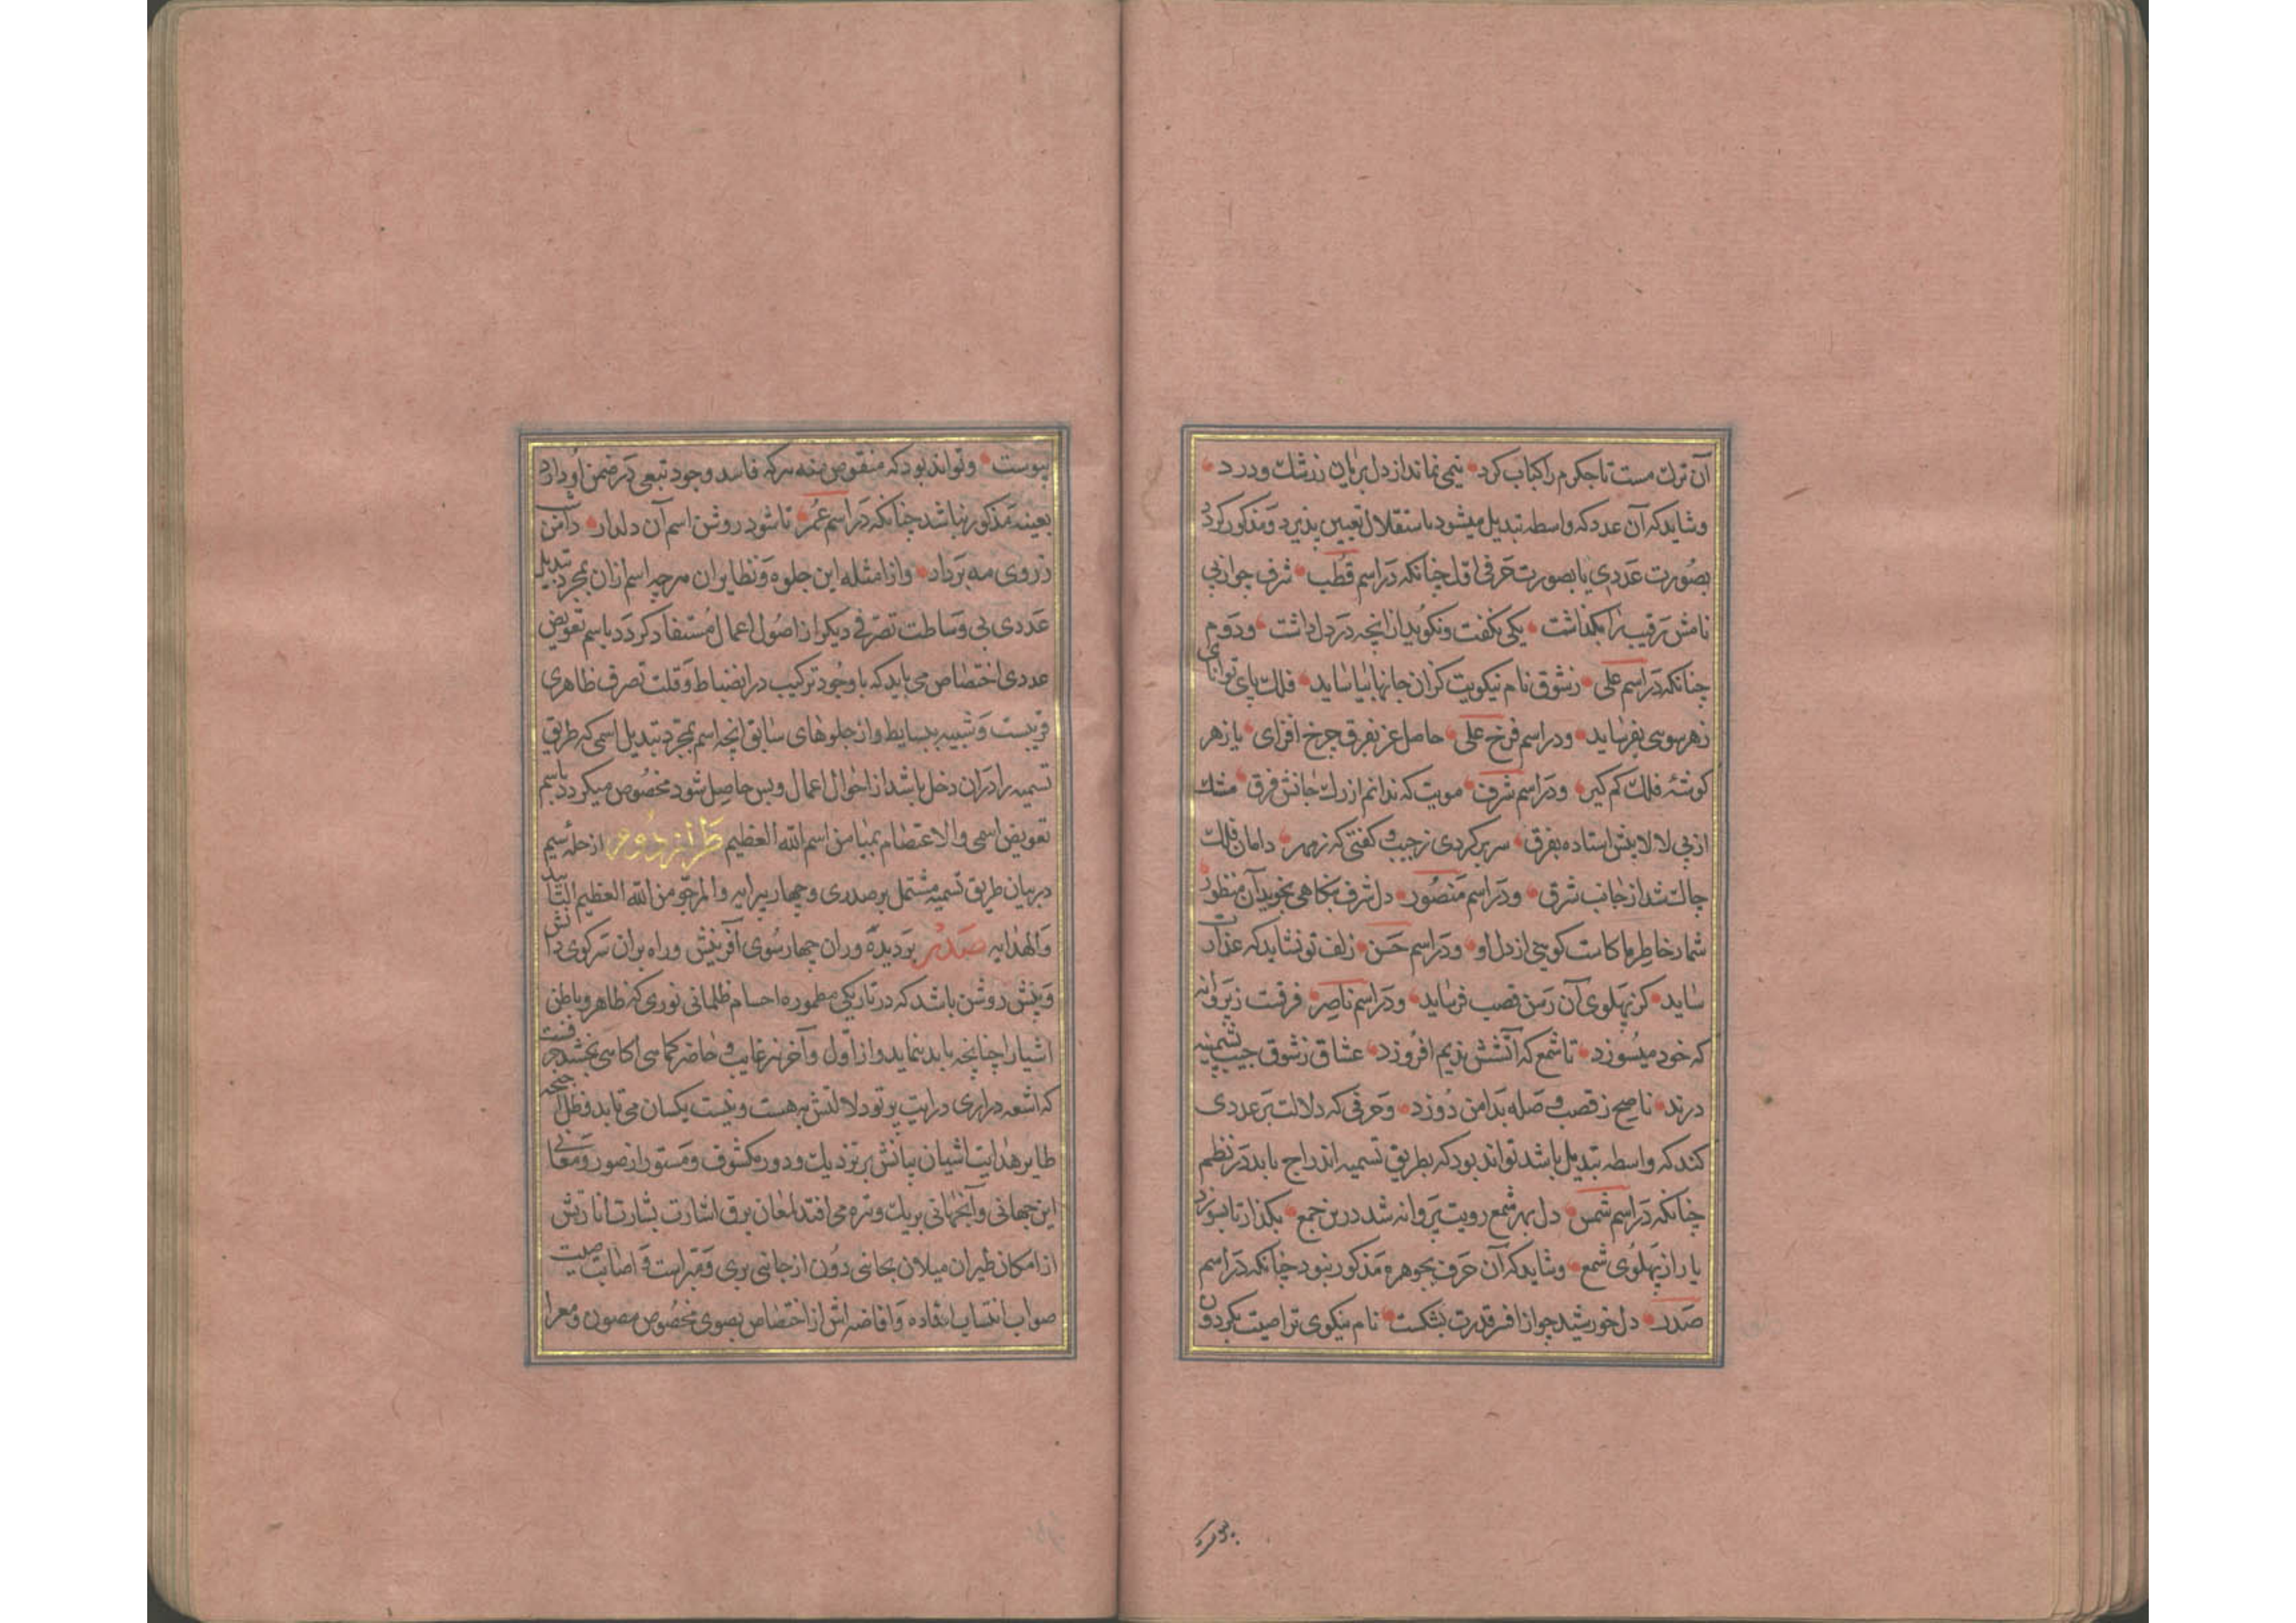 آن ترك مست تا جكرم را كباب كرد نیمی نماند از دل بریان ز رشك و درد
و شاید كه آن عدد كه واسطه تبدیل میشود باستقلال تعیین پذیرد و مذكور كردد
بصورت عددی یا بصورت حرفی اول چنانكه در اسم قطب شرف چو از پی
نامش رقیب را بگذاشت یكی بگفت و نگوید از انچه در دل داشت و دوم
چنانكه در اسم علی ز شوق نام نیكویت كران جانها بیاساید فلك پای توانای
ز هر سوی بفرساید و در اسم فرخ علی حاصل عز بفرق چرخ افزای یا زهر
كوشۀ فلك كم كیر و در اسم شرف مویت كه ندانم از رك جانش فرق مشك
از پی لالایش استاده بفرق سر بر كردی ز جیب و كفتی كه ز مهر دامان فلك
چاك شد از جانب شرق و در اسم منصور دل شرف بنكاهی بخوید آن منظور
شمار خاطر ما كاست كویی از دل او و در اسم حسن زلف تو نشاید كه عذارت
ساید كز پهلوی آن رسن قصب فرساید و در اسم ناصر فرقت ز پروانه
كه خود میسوزد تا شمع كه آتشش ندیم افروزد عشاق ز شوق جیب پشمینه
درند ناصح ز قصب وصله بدامن دوزد و حرفی كه دلالت بر عددی
كند كه واسطه تبدیل باشد تواند بود كه بطریق تسمیه اندراج یابد در نظم
چنانكه در اسم شمس دل بهر شمع رویت پروانه شد درین جمع بكذار تا بسوزد
یار از پهلوی شمع و شاید كه آن حرف بجوهره مذكور نبود چنانكه در اسم
صدر دل خورشید چو از افسر قدرت بشكست نام نیكوی ترا صیت بكردون
پیوست و تواند بود كه منقوص منه هر كه فاسد وجود تبعی در ضمن او دارد
بعینه مذكور نباشد چنانكه در اسم عمر تا شود روشن اسم آن دلدار دامن
ز روی مه بردار و از امثله این جلوه و نظایر ان هر چه اسم از ان بمجرد تبدیل
عددی بی وساطت تصرفی دیكر از اصول اعمال مستفاد كردد باسم تعویض
عددی اختصاص می یابد كه با وجود تركیب در انضباط و قلت تصرف ظاهری
قریبست و شبیه ببسایط و از جلوهای سابق انچه اسم بمجرد تبدیل اسمی كه طریق
تسمیه را در ان دخل باشد از احوال اعمال و بس حاصل شود مخصوص میكردد باسم
تعویض اسمی والاعتصام بمیامن اسم الله العظیم طراز دوم از حله سیم
در بیان طریق تسمیه مشتمل بر صدری و چهار پیرایه والمرجو من الله العظیم التایید
والهدایه صدر بر دیده وران چهار سوی آفرینش و راه بران سر كوی دانش
و بینش روشن باشد كه در تاریكی مطموره اجسام ظلمانی نوری كه ظاهر و باطن
اشیا را چنانچه باید بنماید و از اول و آخر و غایب و حاضر كماهی آكاهی بخشد معرفتست
كه اشعه دراری درایت پرتو دلالتش به هست و نیست یكسان می تابد و ظل اجنحه
طایر هدایت اشیان بیانش بر نزدیك و دور و مكشوف و مستور از صور و معانی
این جهانی و آنجهانی بر یك وتیره می افتد لمعان برق اشارت بشارت اثارتش
از امكان طیران میلان بجانبی دون از جانبی بری و مبراست و اصابت صیت
صواب انتساب افاده و افاضه اش از اختصاص بصوی مخصوص مصون و معرا